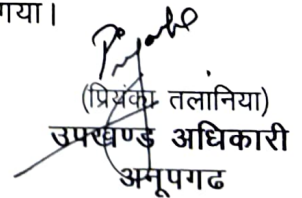 गया।
(प्रियंका तलानिया)
उपखण्ड अधिकारी
अनूपगढ